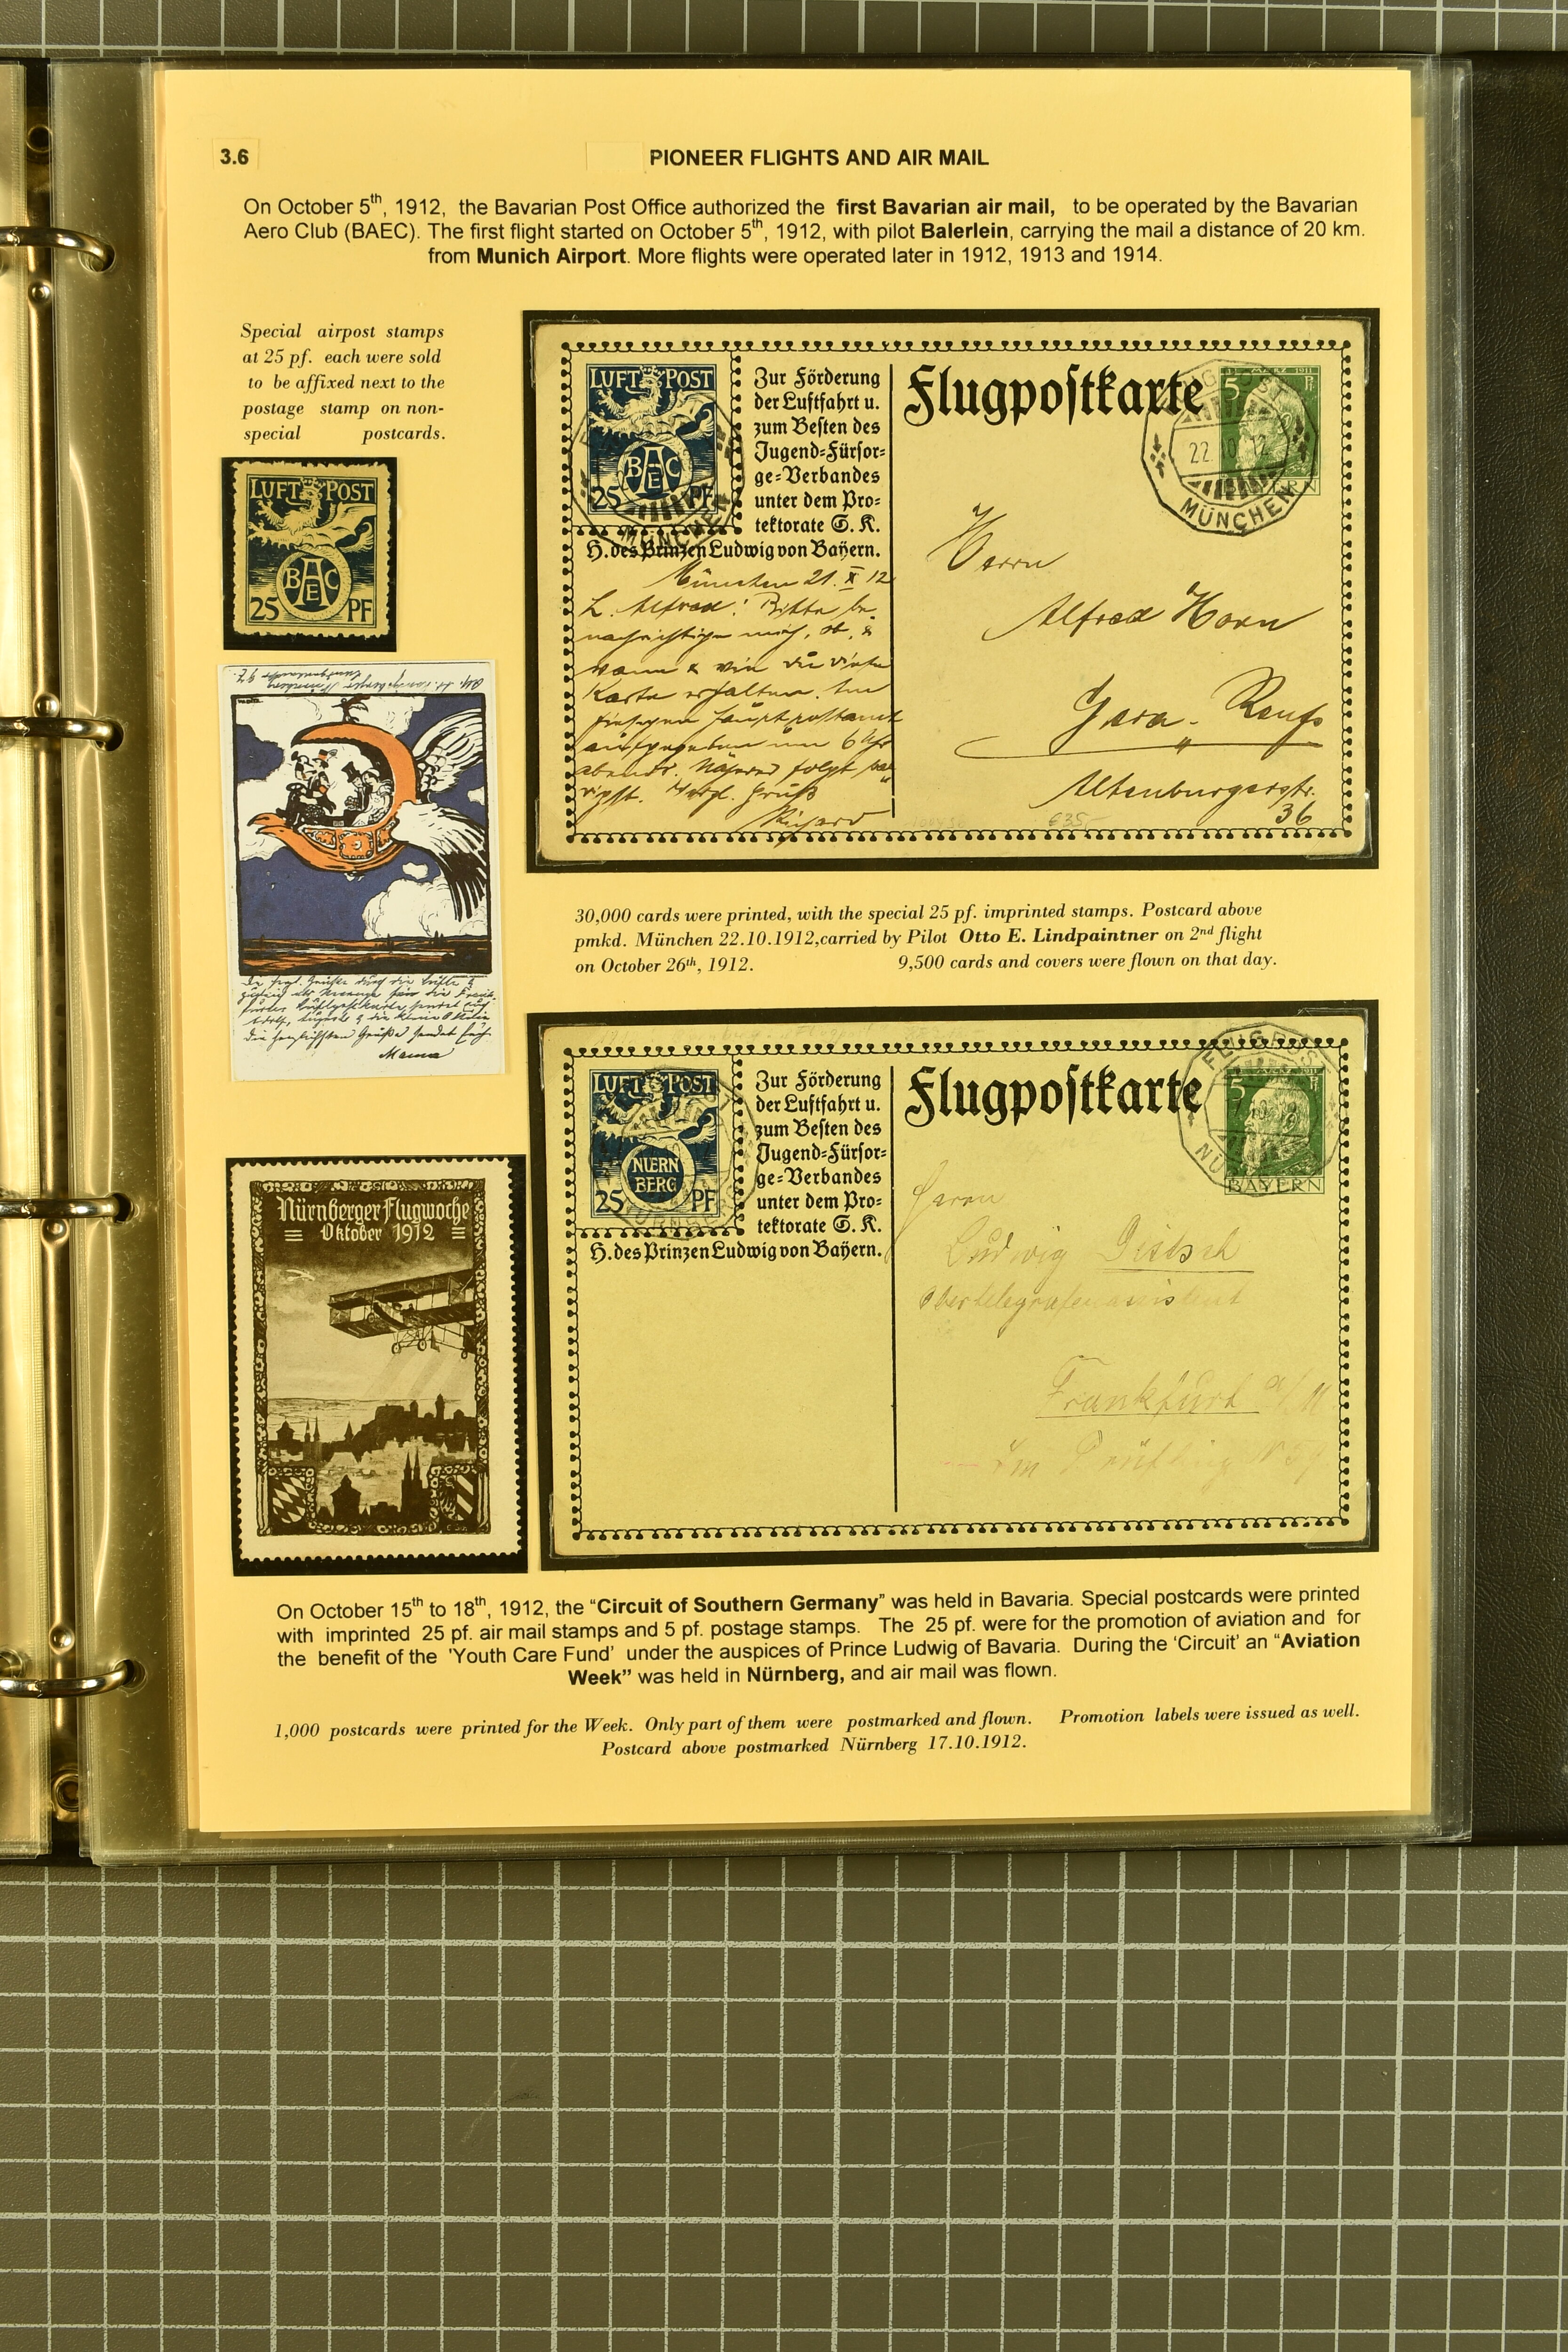 3.6
PIONEER FLIGHTS AND AIR MAIL
On October 5th, 1912, the Bavarian Post Office authorized the first Bavarian air mail, to be operated by the Bavarian
Aero Club (BAEC). The first flight started on October 5th, 1912, with pilot Balerlein, carrying the mail a distance of 20 km.
from Munich Airport. More flights were operated later in 1912, 1913 and 1914.
Special airpost stamps
at 25 pf. each were sold
to be affixed next to the
postage stamp on non-
special postcards.
LUFT POST
BAEC
25 PF
LUFT POST
BAEC
25 PF
MÜNCHEN
Zur Förderung
der Luftfahrt u.
zum Besten des
Jugend=Fürsor=
ge=Verbandes
unter dem Pro=
tektorate S. K.
H. des Prinzen Ludwig von Bayern.
Flugpostkarte
5
22.10.12
MÜNCHEN
München 21. X 12
L. Alfred! Bitte be
nachrichtige mich, ob, &
wann & wie du diese
Karte erhalten. Am
hiesigen Hauptpostamt
aufgegeben um 6 Uhr
abends. Näheres folgt
Gruß
Richard
Herrn
Alfred Horn
Gera - Reuß
Altenburgerstr.
36
€35,-
30,000 cards were printed, with the special 25 pf. imprinted stamps. Postcard above
pmkd. München 22.10.1912,carried by Pilot Otto E. Lindpaintner on 2nd flight
on October 26th, 1912. 9,500 cards and covers were flown on that day.
Mama
LUFT POST
NUERN
BERG
25 PF
Zur Förderung
der Luftfahrt u.
zum Besten des
Jugend=Fürsor=
ge=Verbandes
unter dem Pro=
tektorate S. K.
H. des Prinzen Ludwig von Bayern.
Flugpostkarte
FLUGPOST
5
BAYERN
Herrn
Ludwig Dietsch
Obertelegrafenassistent
Frankfurt a/M.
Nürnberger Flugwoche
Oktober 1912
On October 15th to 18th, 1912, the “Circuit of Southern Germany” was held in Bavaria. Special postcards were printed
with imprinted 25 pf. air mail stamps and 5 pf. postage stamps. The 25 pf. were for the promotion of aviation and for
the benefit of the 'Youth Care Fund' under the auspices of Prince Ludwig of Bavaria. During the ‘Circuit’ an “Aviation
Week” was held in Nürnberg, and air mail was flown.
1,000 postcards were printed for the Week. Only part of them were postmarked and flown. Promotion labels were issued as well.
Postcard above postmarked Nürnberg 17.10.1912.